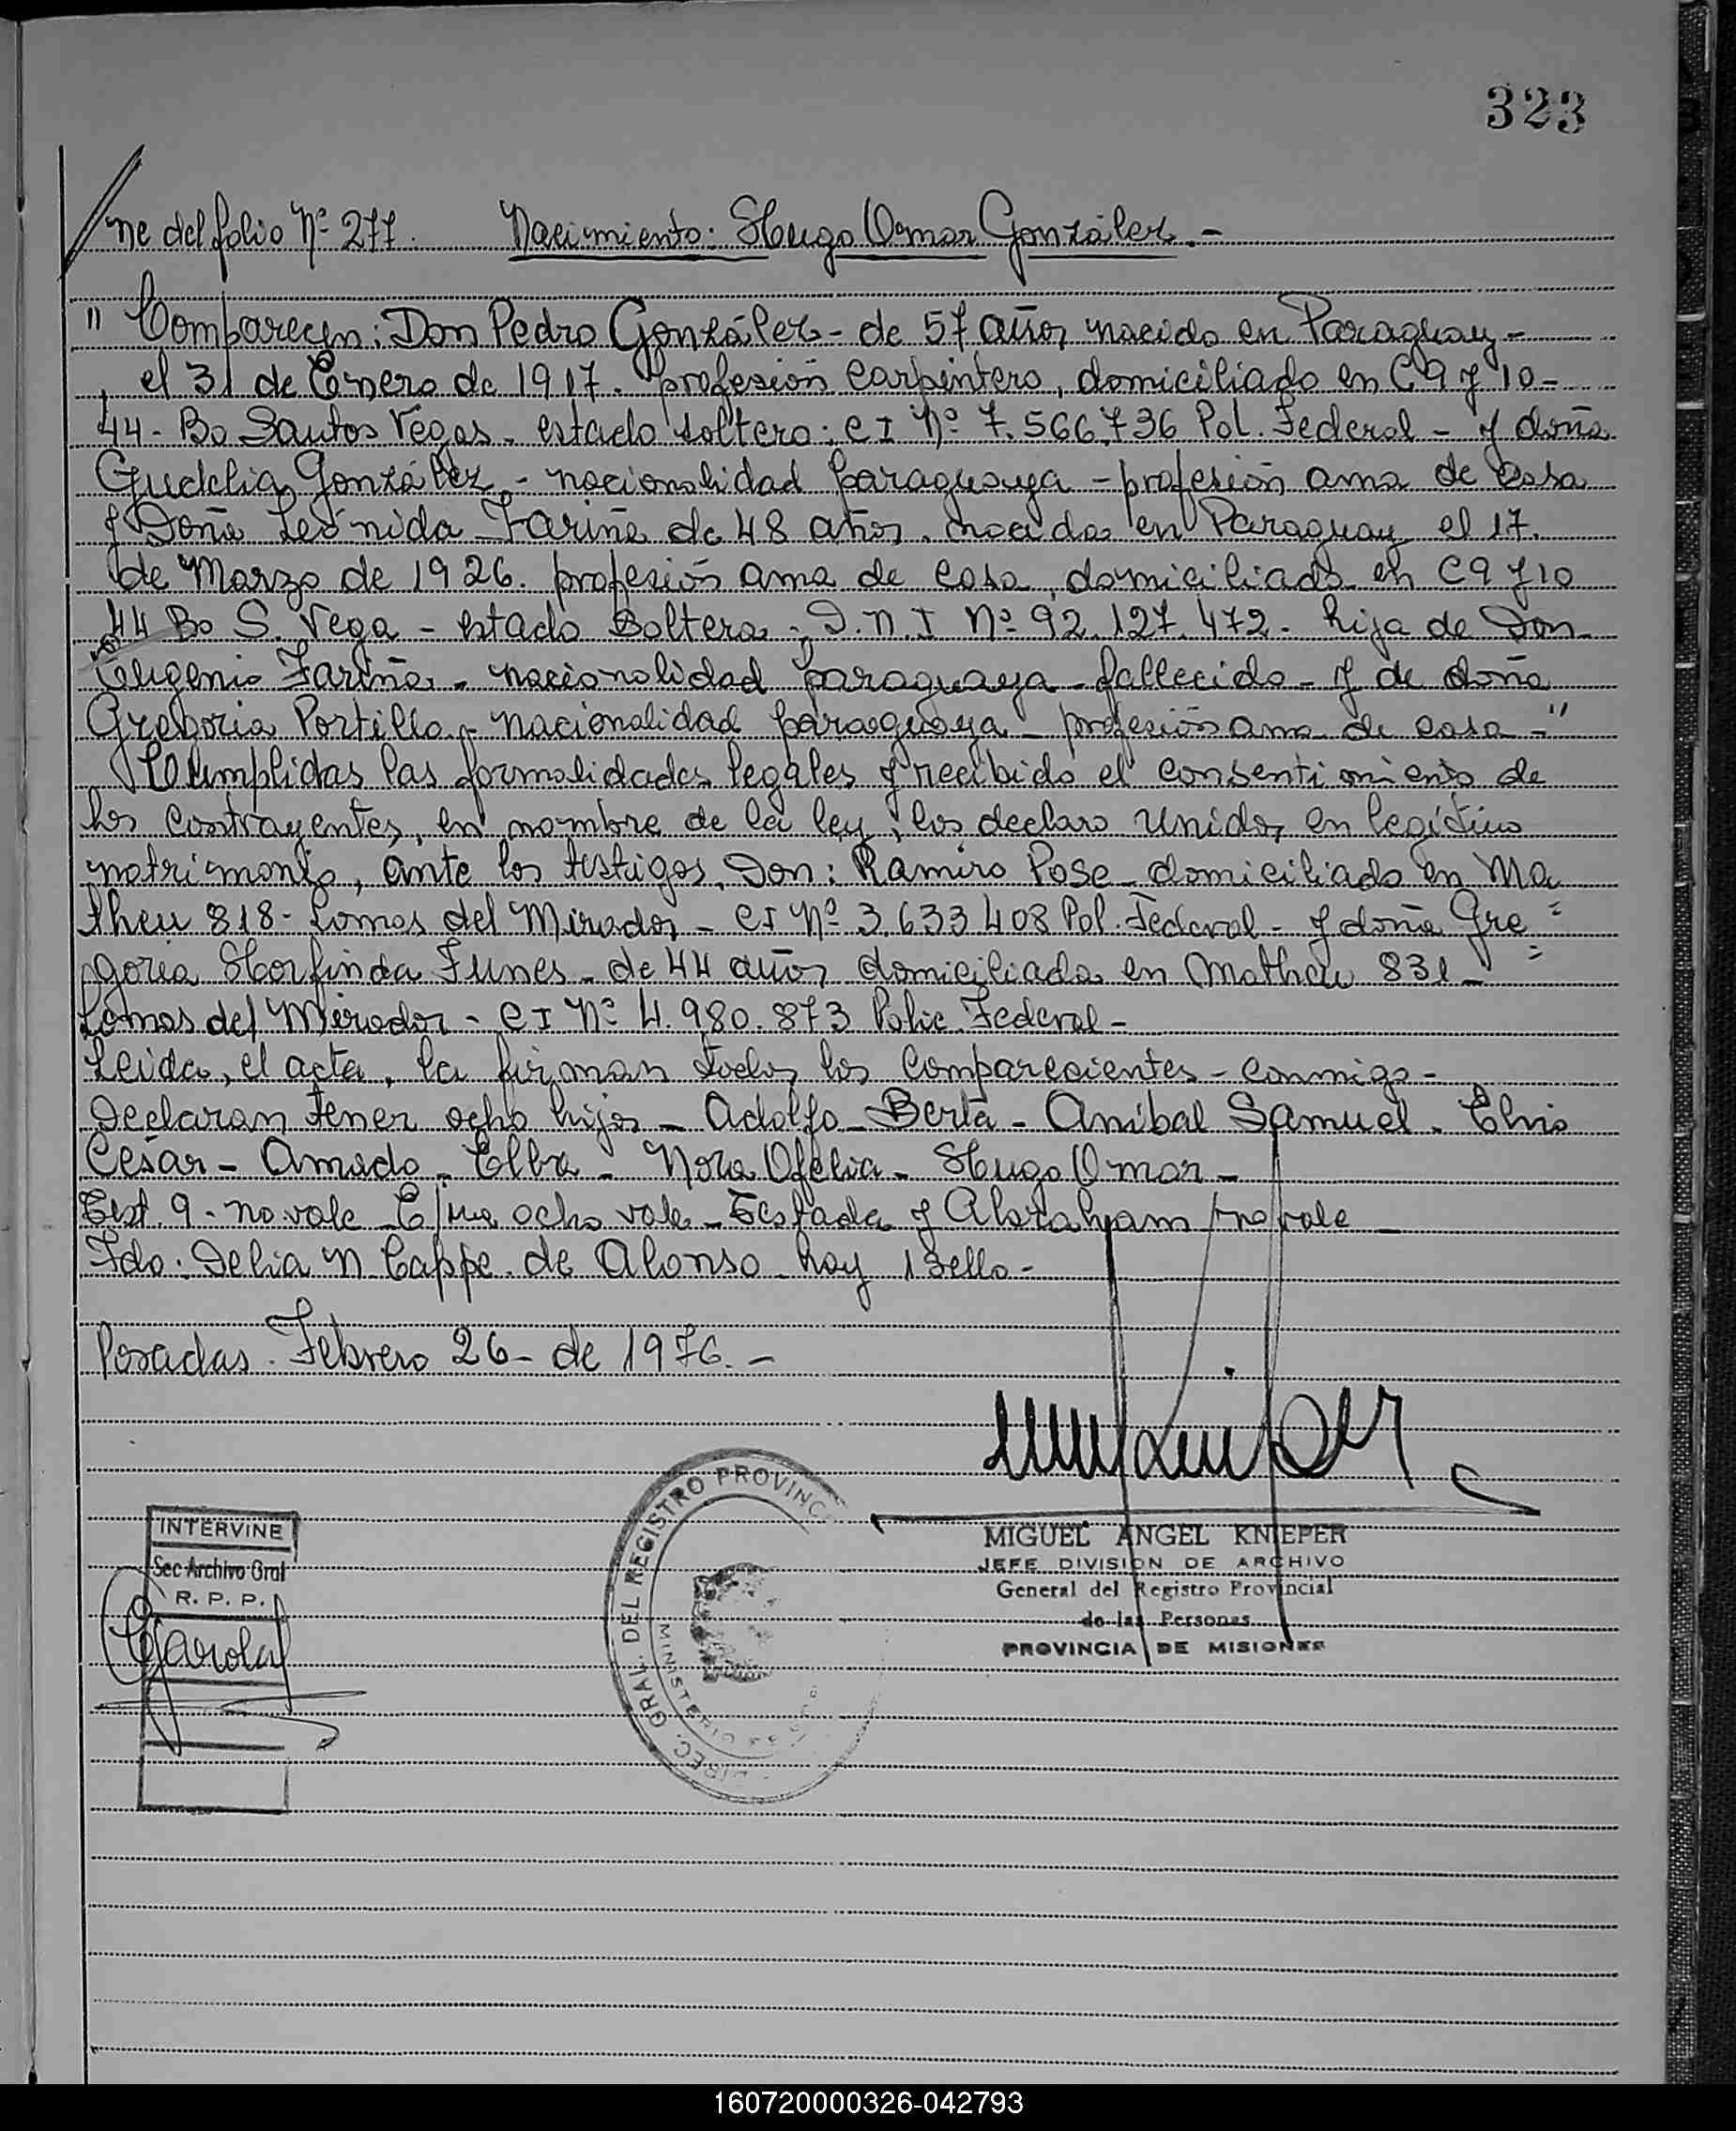 323
//ne del folio Nº 277. Nacimiento: Hugo Omar González.-
" Comparecen: Don Pedro González - de 57 años nacido en Paraguay -
, el 31 de Enero de 1917. profesión carpintero, domiciliado en C 9 y 10 -
44 - Bo Santos Vegas - estado soltero: C I Nº 7.566.736 Pol. Federal - y doña
González - nacionalidad paraguaya - profesión ama de casa
y Doña Leónida Fariña de 48 años. nacida en Paraguay el 17.
de Marzo de 1926. profesión ama de casa, domiciliada en C 9 y 10
44 Bo S. Vega - estado soltera - D.N.I Nº 92.127.472 - hija de Don
Eugenio Fariña - nacionalidad paraguaya - fallecido - y de doña
Gregoria Portillo - nacionalidad paraguaya - profesión ama de casa - "
Cumplidas las formalidades legales y recibido el consentimiento de
los contrayentes, en nombre de la ley, los declaro unidos en legítimo
matrimonio, ante los testigos, Don: Ramiro Pose - domiciliado en Ma
theu 818 - Lomas del Mirador - CI Nº 3.633.408 Pol. Federal - y doña Gre =
goria Horfinda Funes - de 44 años domiciliada en Matheu 831 - =
Lomas del Mirador - C I Nº 4.980.873 Polic. Federal -
Leida, el acta, la firman todos los comparecientes - conmigo -
Declaran tener ocho hijos - Adolfo - Berta - Aníbal Samuel - Elvio
César - Amado - Elba - Nora Ofelia - Hugo Omar -
Test. 9 - no vale - ocho vale - y Abraham no vale -
Fdo: Delia N. Cappe de Alonso - hay 1 Sello -
Posadas. Febrero 26 - de 1976. -
INTERVINE
Sec Archivo Gral
R. P. P.
DIREC. GRAL. DEL REGISTRO PROVINC
MINISTERIO
MIGUEL ANGEL KNIEPER
JEFE DIVISION DE ARCHIVO
General del Registro Provincial
de las Personas
PROVINCIA DE MISIONES
160720000326-042793